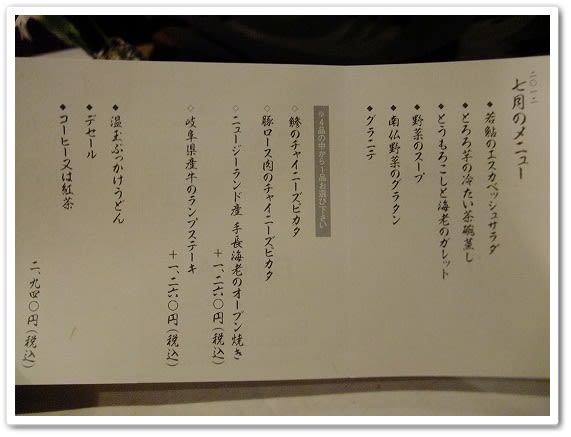 二〇一二
七月のメニュー
◆若鮎のエスカベッシュサラダ
◆とろろ芋の冷たい茶碗蒸し
◆とうもろこしと海老のガレット
◆野菜のスープ
◆南仏野菜のグラタン
◆グラニテ
※4品の中から1品お選び下さい
◇鯵のチャイニーズピカタ
◇豚ロース肉のチャイニーズピカタ
◇ニュージーランド産 手長海老のオーブン焼き
+一、二六〇円(税込)
◇岐阜県産牛のランプステーキ
+一、二六〇円(税込)
◆温玉ぶっかけうどん
◆デセール
◆コーヒー又は紅茶
二、九四〇円(税込)